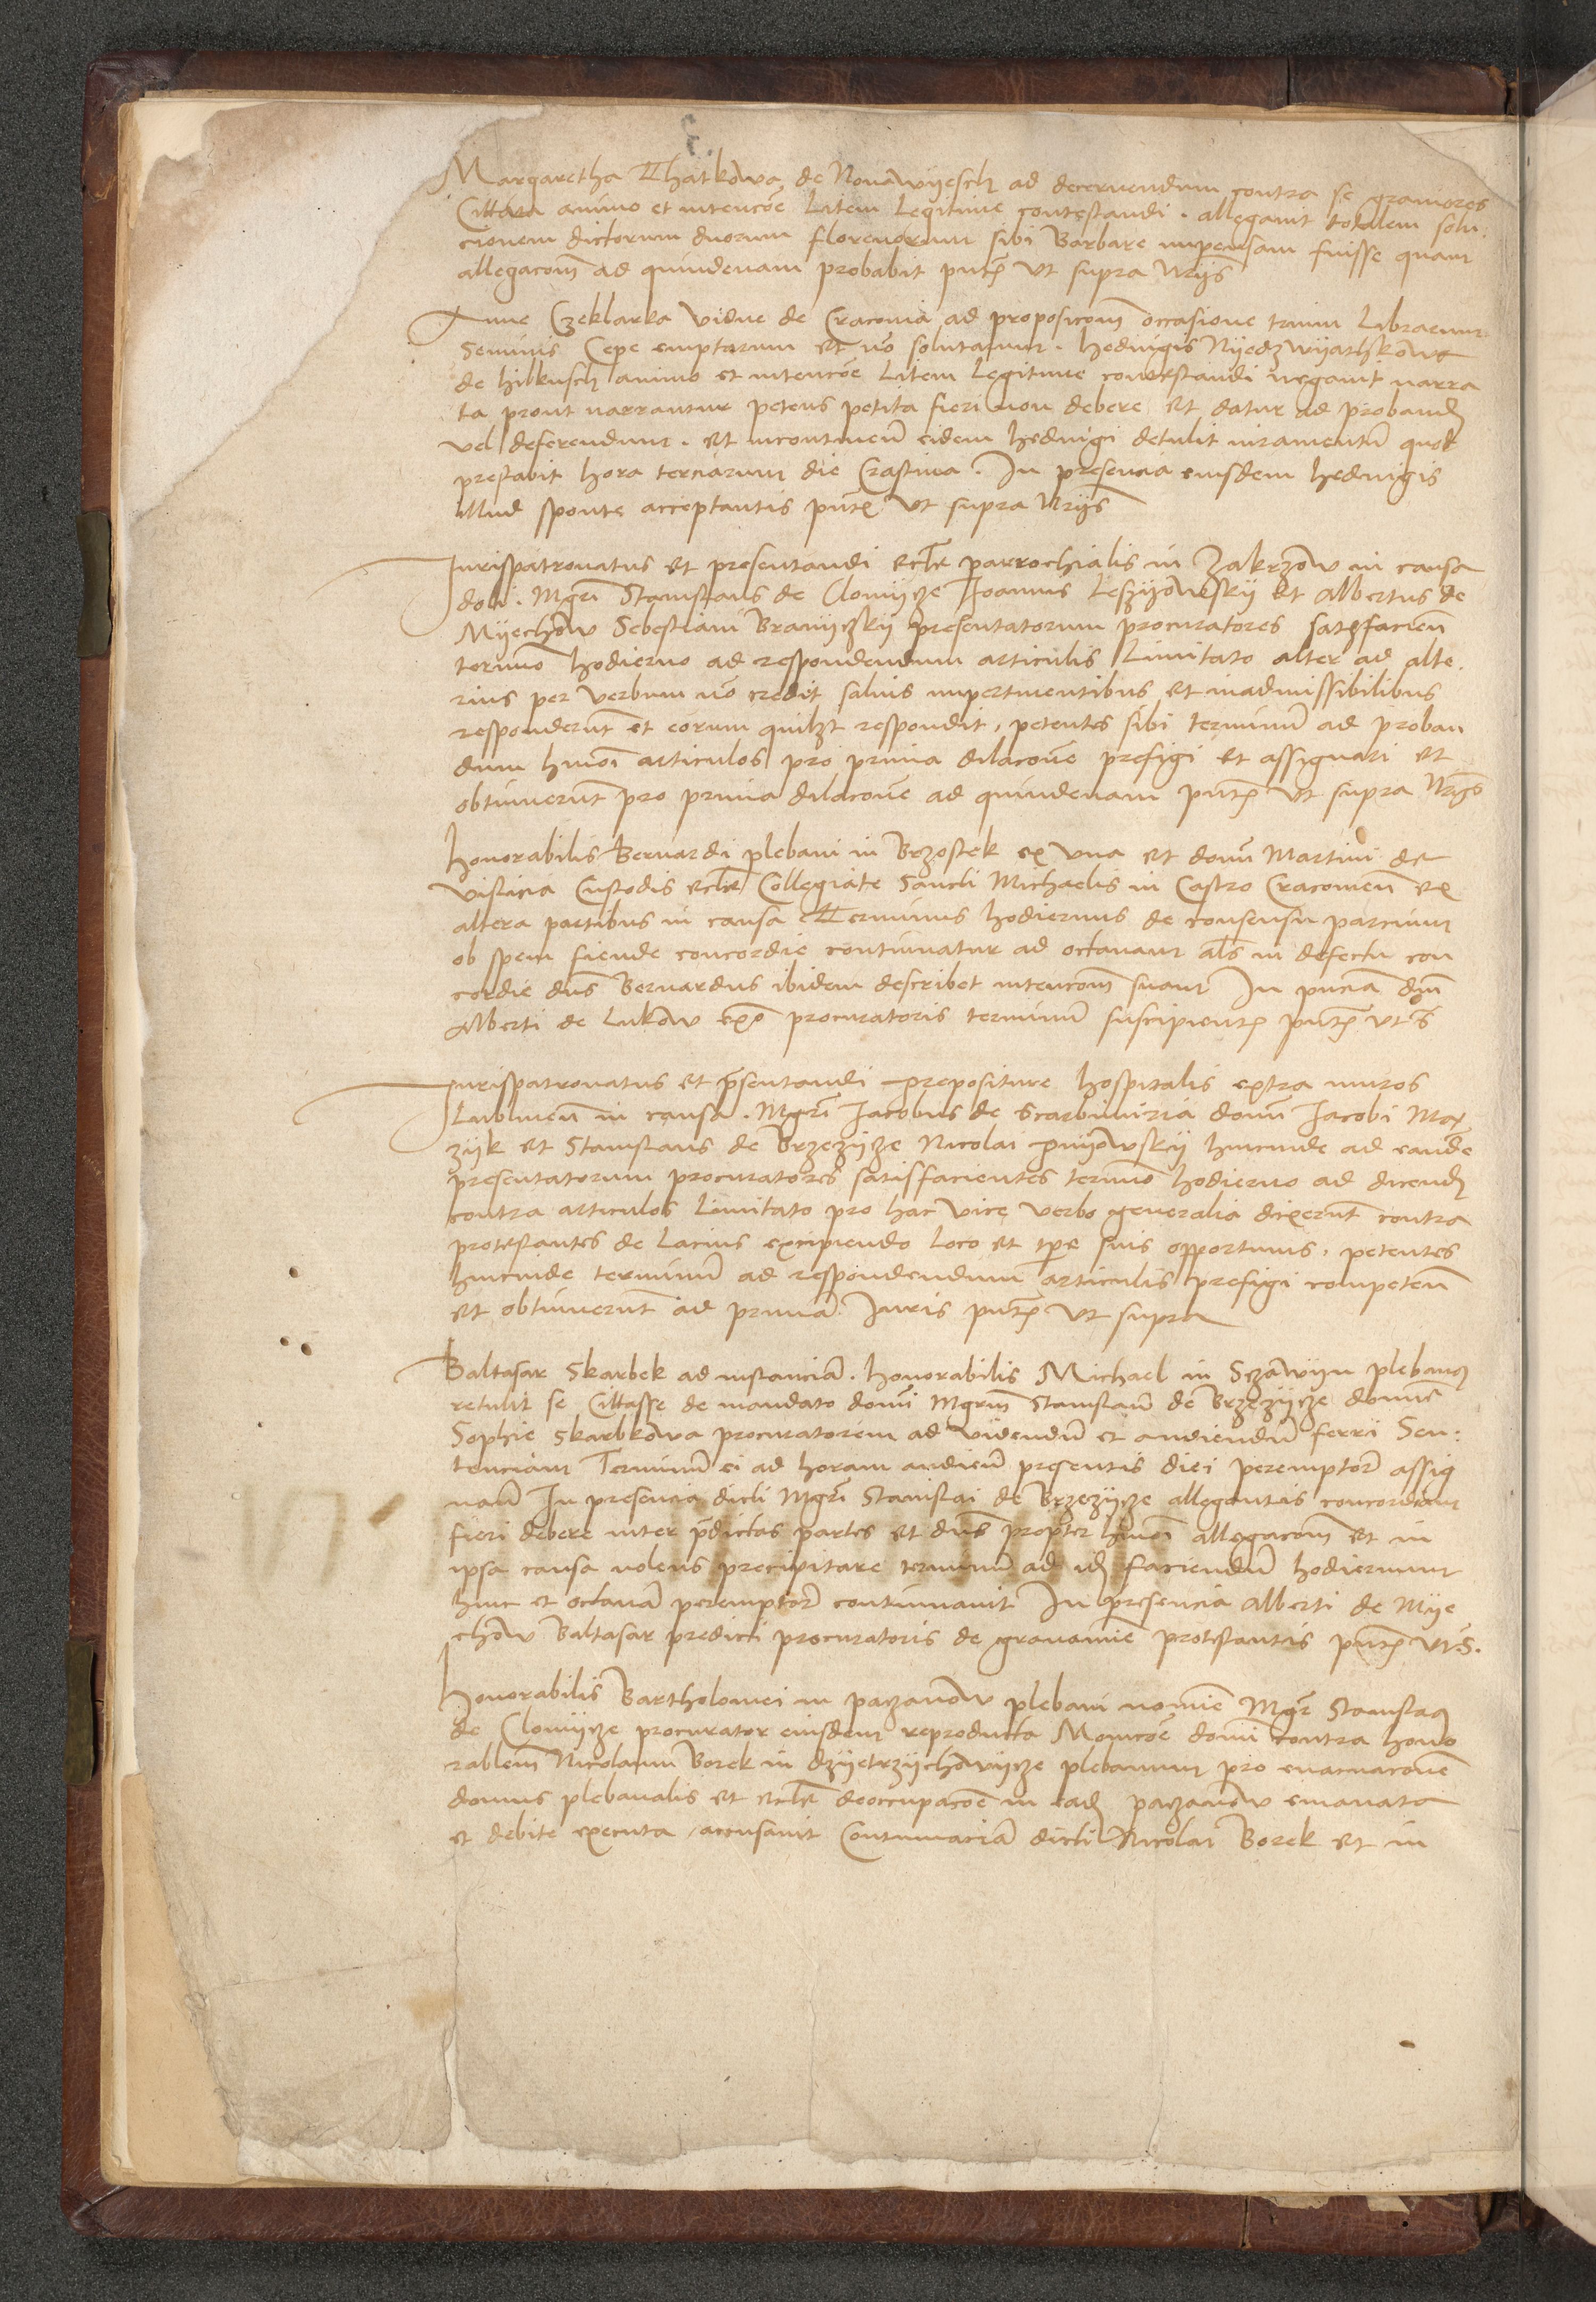 Margaretha Thatkowa de Novawyesch ad decernendum contra se graviores
Cittata animo et intencōe Litem Legitime contestandi . allegavit totalem solu
cionem dictorum duorum florenorum sibi Barbare impensam fuisse quam
allegacom̄ ad quindenam probabit pn̄t. Vt supra
Anne Czeklarka Vidue de Cracovia ad proposicom̄ occasione trium Librarum
Seminis Cepe emptarum et nō solutarum . hedvigis Nyedzwyathkowa
de hilkusch animo et intencōe Litem Legitime contestandi negavit narra
ta prout narrantur petens petita fieri non debere et datur ad proband
vel deferendum . et incontinen̄ eidem hedvigi detulit iuramentū quod
prestabit hora terciarum die Crastina . In presencia eiusdem hedvigis
illud sponte acceptantis pn̄t. Vt supra
Jurispatronatus et presentandi ecl̄e parrochialis in Zakrzow in causa
dn̄i . Mgr̄i Stanislaus de Clomycze Joannis Leszyowsky et Albertus de
Myechow Sebestiani Branyczky presentatorum procuratores satisfacien̄
termīo hodierno ad respondendum articulis Limitato alter ad alte
rius per verbum nō credit salvis impertinentibus et inadmissibilibus
responderūt et eorum quilz̄t respondit , petentes sibi terminū ad proban
dum hmōi articulos pro prima dilacōne prefigi et assignari et
obtinuerūt pro prima dilacōne ad quindenam pn̄t. Vt supra
honorabilis Bernardi plebani in Brzostek ex vna et domī Martini de
Vislicia Custodis ecl̄e Collegiate Sancti Michaelis in Castro Cracovien̄ ex
altera partibus in causa Terminus hodiernus de consensu parcium
ob spem fiende concordie continuatur ad octavam al̄s in defectu con
cordie dn̄s Bernardus ibidem describet intencom̄ suam In pn̄cia dn̄i
Alberti de Lukow procuratoris terminū suscipient. pn̄t. vt s
Jurispatronatus et p̄sentandi prepositure hospitalis extra muros
Lublinen̄ in causa . Mgr̄i Jacobus de Scarbimiria domī Jacobi
zyk et Stanislaus de Brzezycze Nicolai hincinde ad eandē
presentatorum procuratores satisfacientes termīo hodierno ad dicend
contra articulos Limitato pro hac vice verbo generalia dixerūt contra
protestantes de Lacius excipiendo Loco et tp̄e suis opportunis , petentes
hincinde terminū ad respondendum articulis prefigi competen̄
et obtinuerūt ad primā Juris pn̄t. Vt supra
Baltasar Skarbek ad instanciā . honorabilis Michael in Sczawyn plebanus
retulit se Cittasse de mandato domī Mgrm̄ Stanislaū de Brzezycze domīe
Sophie Skarbkowa procuratorem ad videndū et audiendū ferri Sen:
tenciam Terminū ei ad horam audien̄ presentis diei peremptor̄ assig
nan̄ In presencia dicti Mgr̄i Stanislai de Brzezycze allegantis concordiam
fieri debere inter p̄dictas partes et dn̄s propter hmōi allegacom̄ et in
ipsa causa nolens precipitare terminū ad id faciendū hodiernum
hinc et octavā peremptor̄ continuavit In presencia Alberti de Mye
chow Baltasar predicti procuratoris de gravamīe protestantis pn̄t. vt. S.
honorabilis Bartholomei in paczanow plebani nomīe Mgr̄ Stanislaus
de Clomycze procurator eiusdem reproducta Monicōe domī contra hono
rablem̄ Nicolaum Borek in dzyetrzychowycze plebanum pro evacuacōne
domus plebanalis et ecl̄e deoccupacōe in ead paczanow emanata
et debite executa , accusavit Contumaciā dicti Nicolai Borek et in